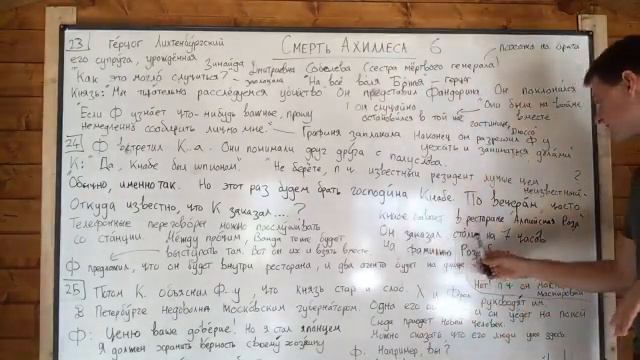 Смерть Ахиллеса 6
23 Герцог Лихтенбургский
его супруга, урождённая Зинаида Дмитриевна Соболева (сестра мёртвого генерала)
похожа на брата
"Как это могло случиться? - "На всё воля Божья - герцог
Князь: "Мы тщательно расследуем убийство. Он представил Фандорина. Он поклонился
"Если Ф узнает что-нибудь важное, прошу
немедленно сообщить лично мне."
он случайно
остановился в той же гостинице,
"Они были на войне
вместе
Графиня заплакала Наконец он разрешил Ф у
уехать и заниматься делами"
24 Ф встретил К...а. Они понимали друг друга с полуслова.
К: "Да, Кнабе был шпионом." "Не берёте, п ч известный резидент лучше чем
неизвестный-
"Обычно, именно так. Но этот раз будем брать господина Кнабе. По вечерам часто
Кнабе бывает в ресторане "Альпийская Роза"
Откуда известно, что К заказал....?
Телефонные переговоры можно прослушивать
со станции
Он заказал столик на 7 часов
на фамилию
Между прочим, Ванда тоже будет
выступать там. Вот он их и взять вместе
Ф предложил, что он будет внутри ресторана, и два агента будет на улице
25 Потом К. объяснил Ф-у, что князь стар и слаб.
В Петербурге недовольны Московским губернатором.
руководят им
и он уедет на покой
Сюда приедет новый человек.
Ф: Ценю ваше доверие! Но я стал японцем
Я должен хранить верность своему хозяину
Можно сказать, что его люди уже здесь.
Ф: Например, Вы?